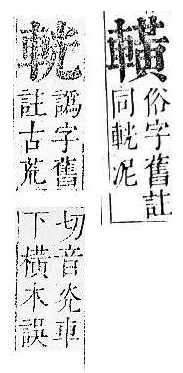 𨎩
俗字舊註
同泥
譌字舊
註古荒
切音灮車
下橫木誤